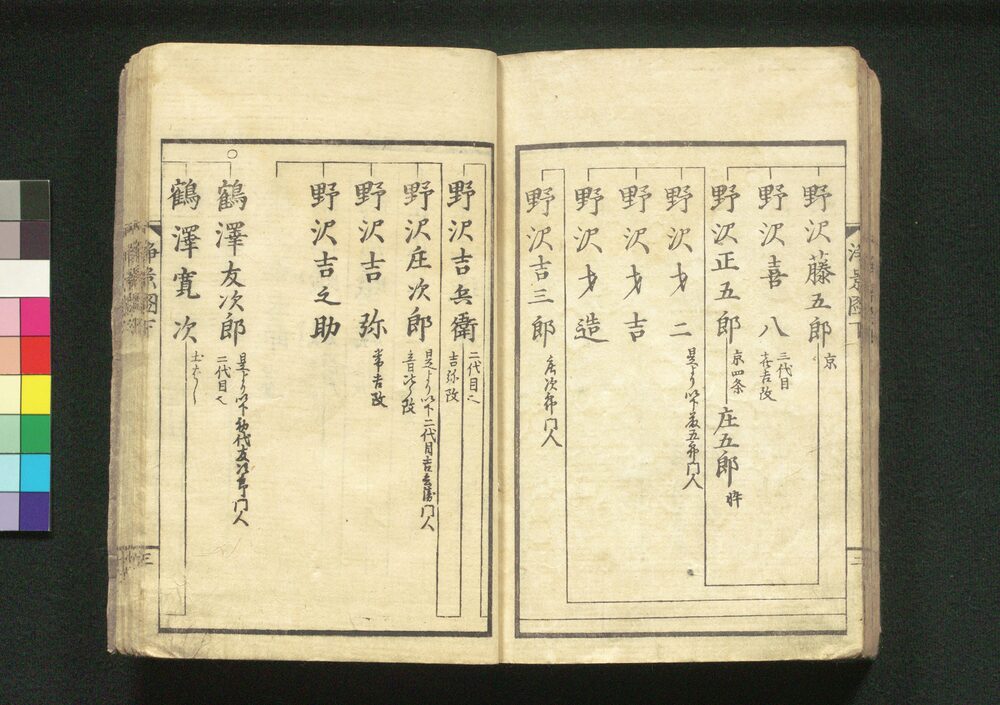 野沢藤五郎
京
野沢喜八
三代目
喜吉改
野沢正五郎
京四条
庄五郎
忰
野沢才二
是より以下藤五郎門人
野沢才吉
野沢才造
野沢吉三郎
庄次郎門人
野沢吉兵衛
二代目
吉弥改
野沢庄次郎
是より以下二代目吉兵衛門人
野沢吉弥
常吉改
野沢吉之助
鶴澤友次郎
是より以下初代友次郎門人
二代目
鶴澤寛次
三